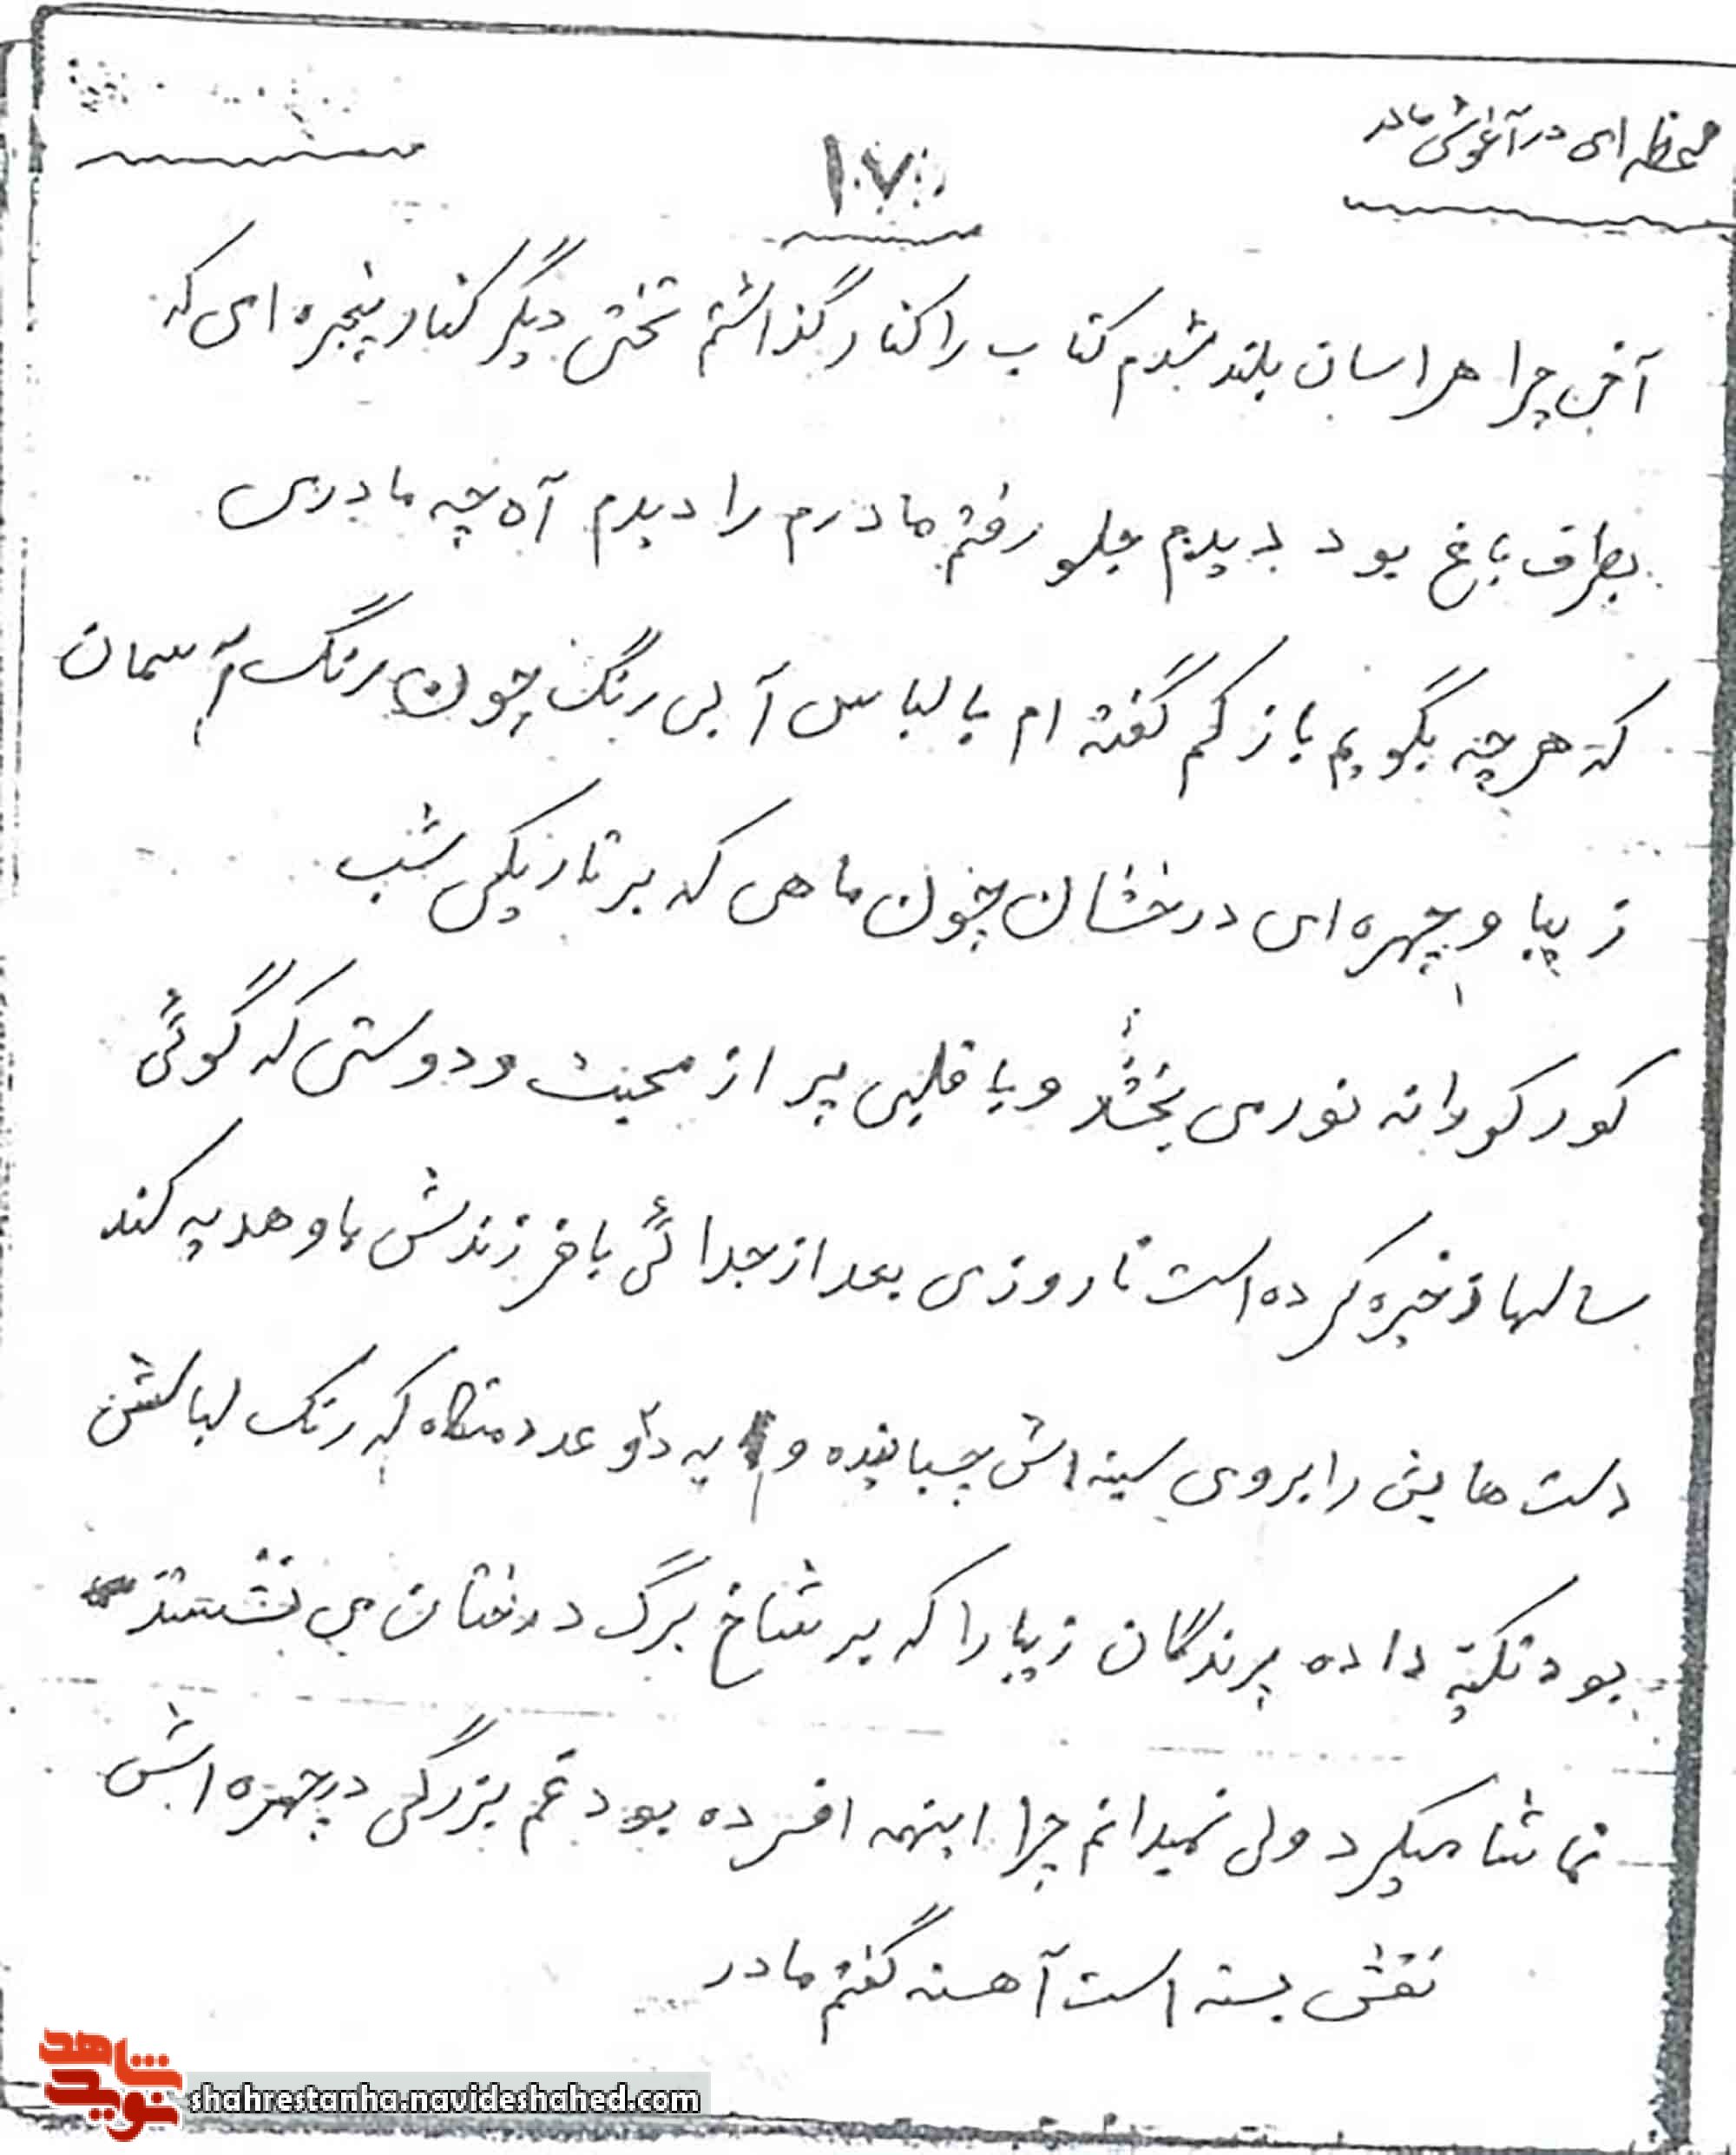 لحظه ای در آغوش مادر
۱۷۰
آخر چرا هراسان بلند شدم کتاب را کنار گذاشتم تختی دیگر کنار پنجره ای که
بطرف باغ بود دیدم جلو رفتم مادرم را دیدم آه چه مادری
که هر چه بگویم باز کم گفته ام با لباس آبی رنگ چون رنگ آسمان
زیبا و چهره ای درخشان چون ماهی که بر تاریکی شب
کورکورانه نوری بخشد و با قلبی پر از محبت و دوستی که گوئی
سالها ذخیره کرده است تا روزی بعد از جدائی با فرزندش باو هدیه کند
دست هایش را بروی سینه اش چسبانیده و به دو عدد متکاه که رنگ لباسش
بود تکیه داده پرندگان زیبا را که بر شاخ برگ درختان می نشستند
تماشا میکرد ولی نمیدانم چرا اینهمه افسرده بود غم بزرگی در چهره اش
نقش بسته است آهسته گفتم مادر
شاهد
نوید
shahrestanha.navideshahed.com